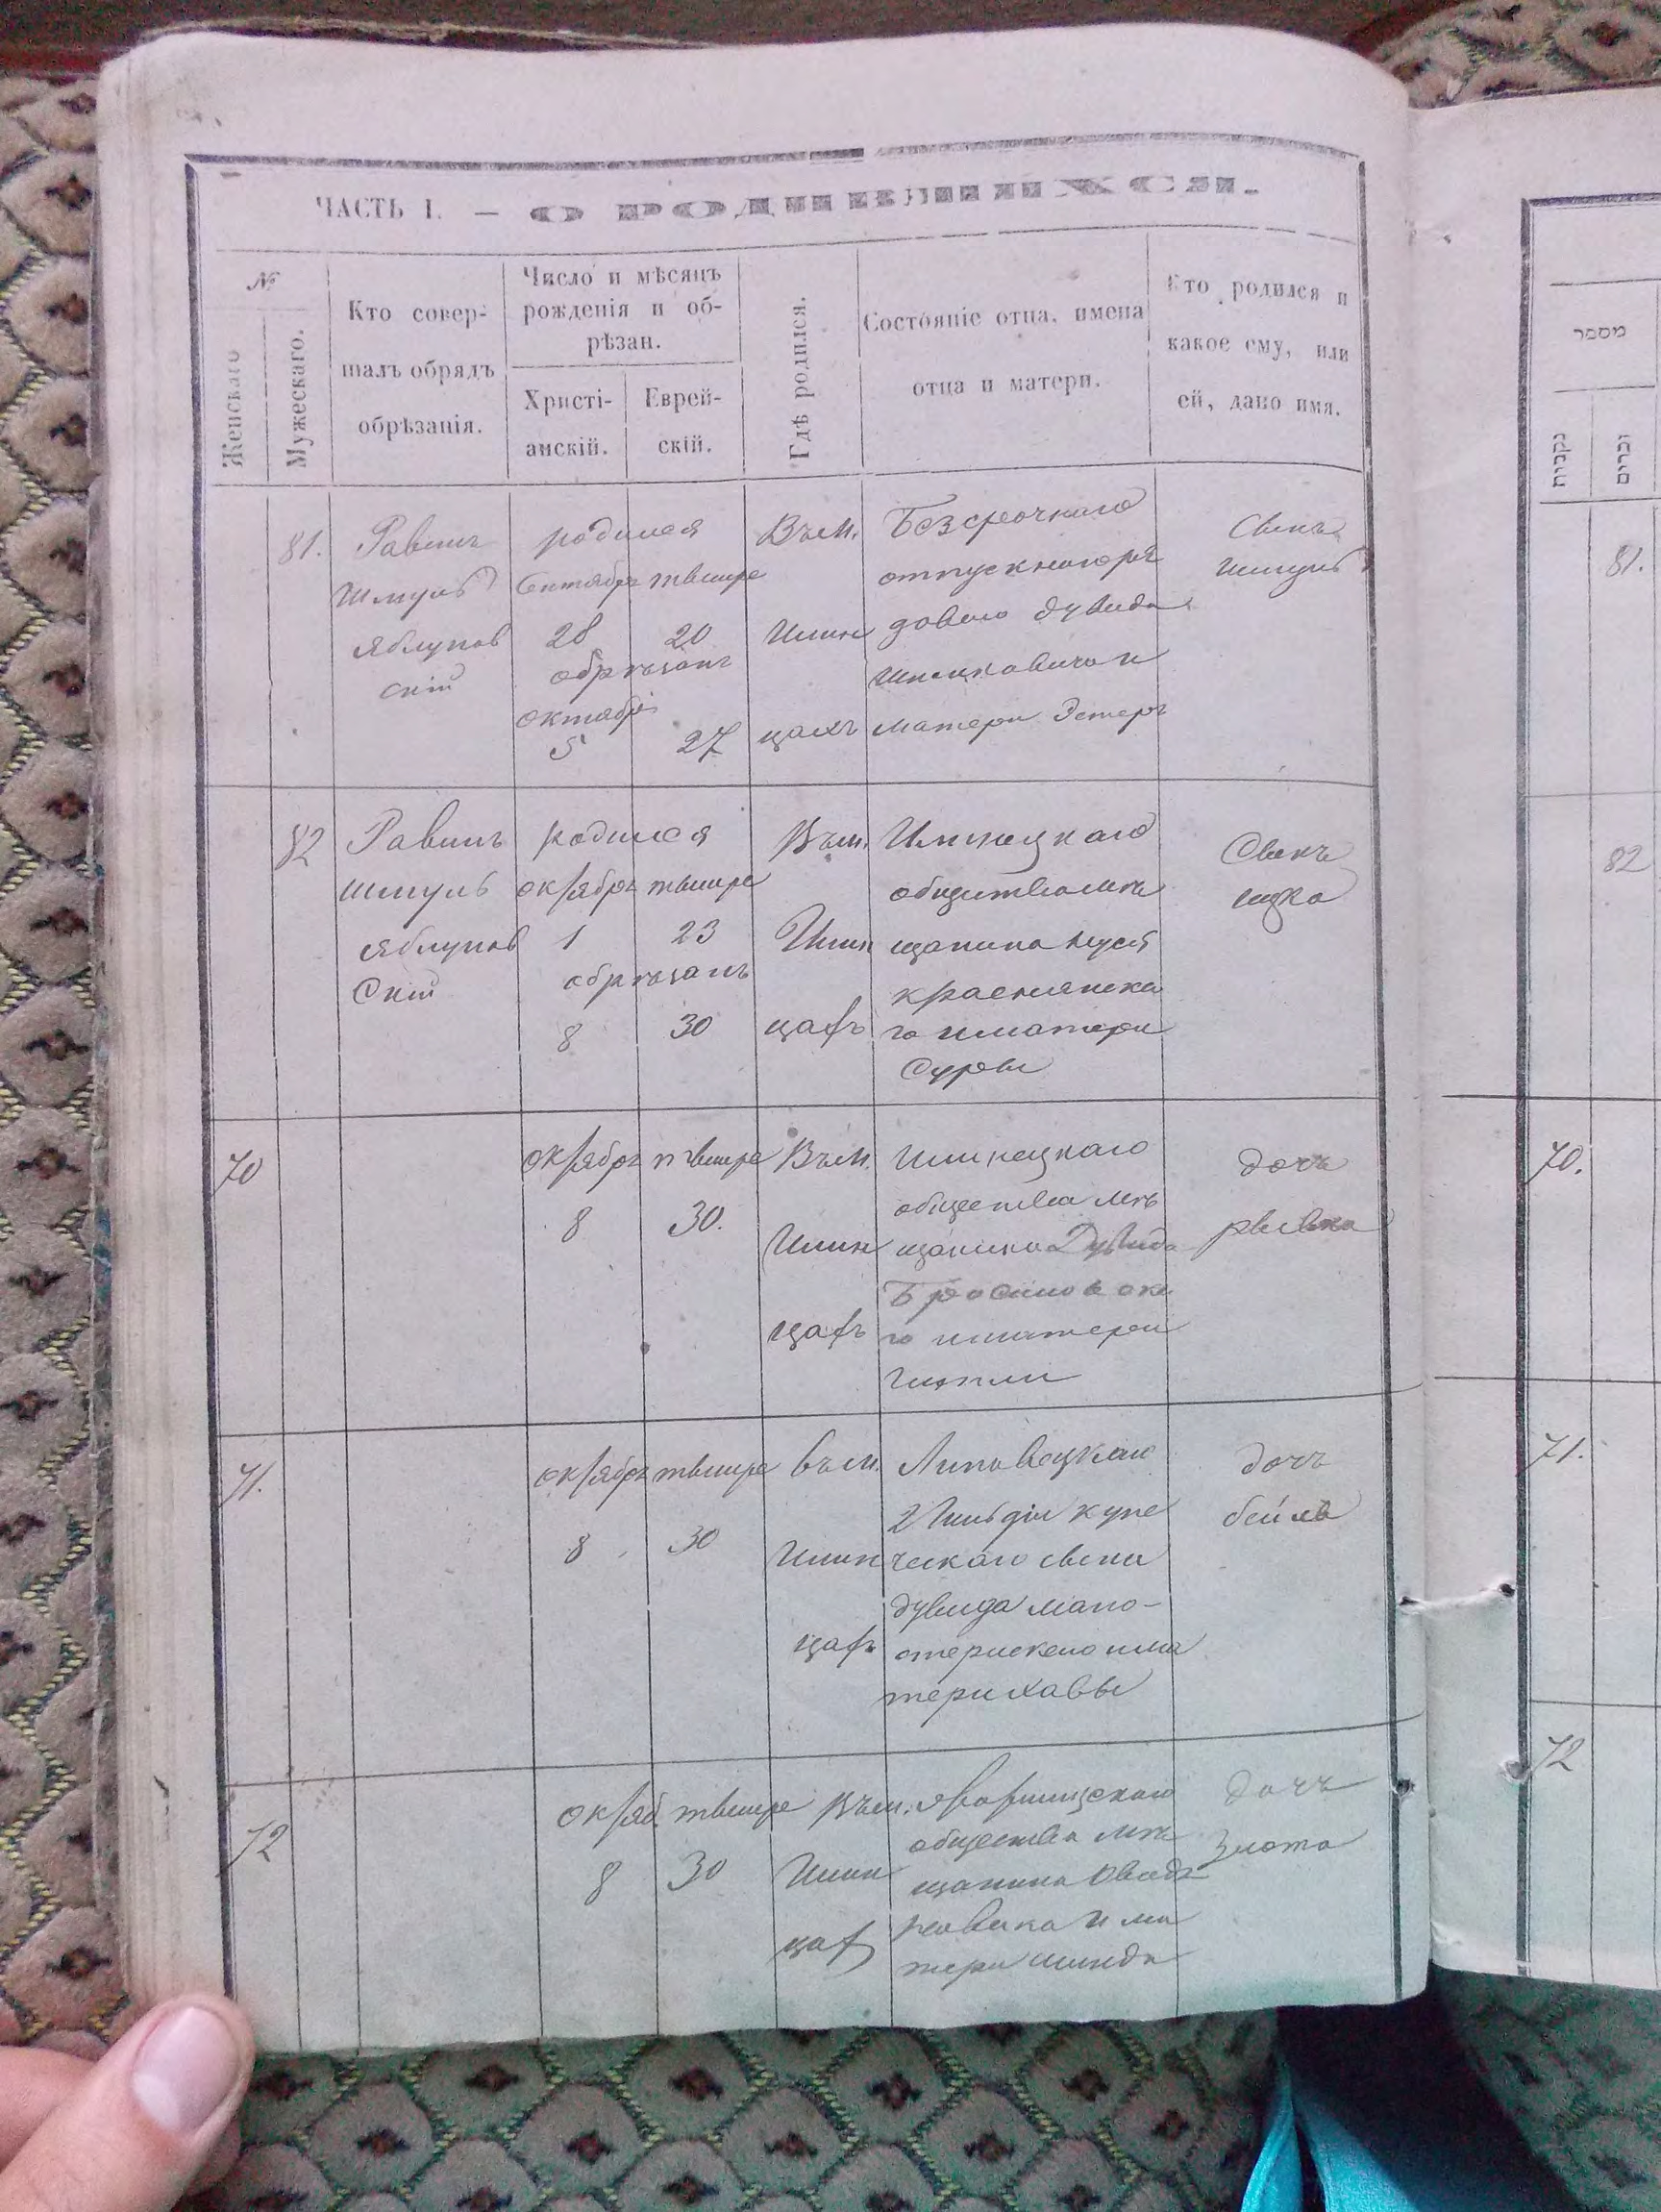 ЧАСТЬ I. — О РОДИВШИХСЯ.
№
Женскаго
Мужескаго.
Кто совер-
шалъ обрядъ
обрѣзанія.
Число и мѣсяцъ
рожденія и об-
рѣзан.
Христі-
анскій.
Еврей-
скій.
Гдѣ родился.
Состояніе отца, имена
отца и матери.
Кто родился и
какое ему, или
ей, дано имя.
81.
Равинъ
Шмуль
Яблунов
скій
родился
Сентябрь тишре
28 20
обрѣзанъ
октябрь
5 27
Въ м.
Илин
цахъ
Безсрочнаго
отпускнаго ря
доваго Дувида
матери Эстеръ
Сынъ
Шмуль
82
Равинъ
Шмуль
Яблунов
Скій
родился
октябрь тишре
1 23
обрѣзанъ
8 30
Въ м.
Илин
цахъ
Илинецкаго
общества мѣ
щанина
красняска
го и матери
Суры
Сынъ
ицко
70
октябрь тишре
8 30.
Въ м.
Илин
цахъ
Илинецкаго
общества мѣ
щанина Дувида
го и матери
дочь
рывка
71.
октябрь тишре
8 30
въ м.
Илин
цахъ
Липовецкаго
2 Гильдіи купе
ческаго сына
дувида мало-
тери хавы
дочь
бейла
72
октяб. тишре
8 30
Въ м.
Илин
цах
общества мѣ
щанина
и ма
тери
дочь
Злота
מספר
נקבות
זכרים
81.
82
70.
71.
72